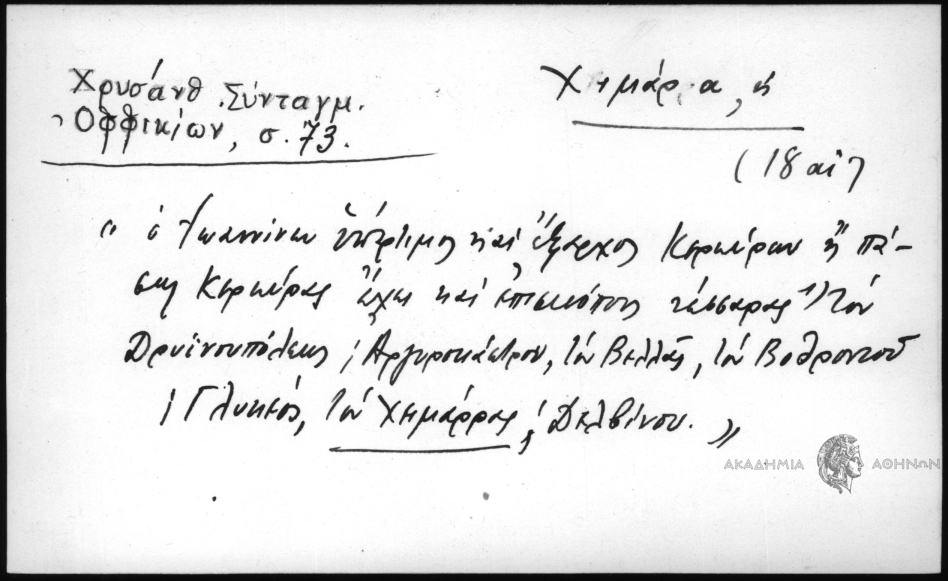 Χρυσάνθ. Σύνταγμ.
Ὀφφικίων, σ. 73.
Χημάρρα, ἡ
(18 αἰ)
" ὁ Ἰωαννίνων ὑπέρτιμος καὶ ἔξαρχος Κερκύρων ἢ πά-
σης Κερκύρας ἔχων καὶ ἐπισκόπους τέσσαρας 1) τὸν
Δρυϊνουπόλεως ἢ Ἀργυροκάστρου, τὸν Βελλᾶς, τὸν Βοθροντοῦ
ἢ Γλυκέος, τὸν Χημάρρας ἢ Δελβίνου. "
ΑΚΑΔΗΜΙΑ ΑΘΗΝΩΝ